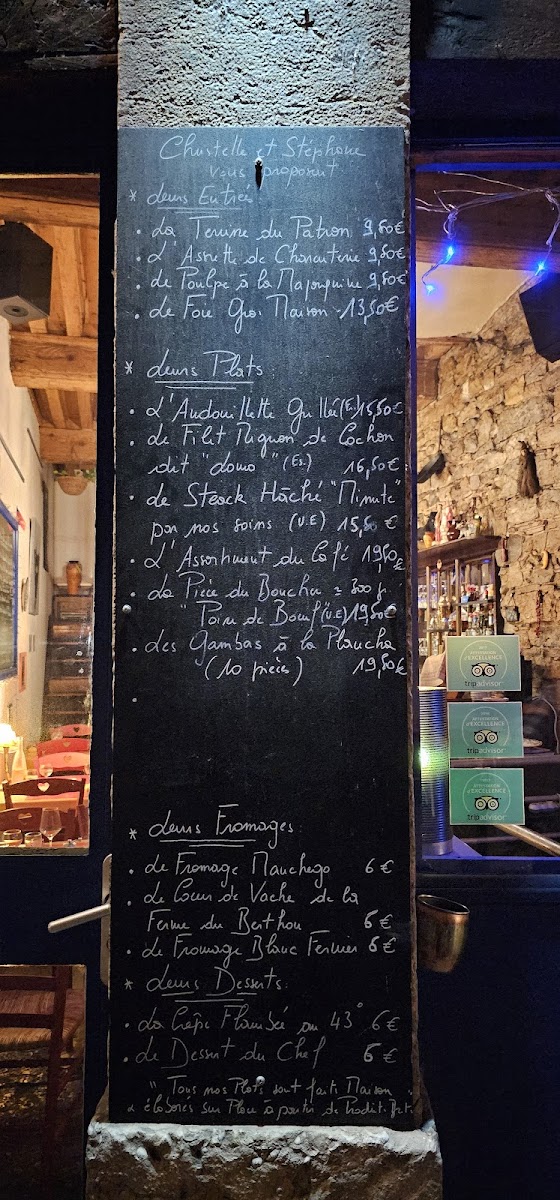 Christelle et Stéphane
vous proposent
* Leurs Entrées
. La Terrine du Patron 9,50€
. L'Assiette de Charcuterie 9,50€
. Le Poulpe à la Majorquine 9,50€
. Le Foie Gras Maison - 13,50€
* Leurs Plats
. L'Andouillette Grillée (Fr.) 15,50€
. Le Filet Mignon de Cochon
dit "Lomo" (Es.) 16,50€
. Le Steack Hâché "Minute"
par nos soins (U.E) 15,50€
. L'Assortiment du Café 19,50€
. La Pièce du Boucher ≃ 300 g.
" Poire de Boeuf (U.E) 19,50€
. Les Gambas à la Plancha
(10 pièces) 19,50€
.
* Leurs Fromages:
. Le Fromage Manchego 6€
. Le Coeur de Vache de la
Ferme du Berthou 6€
. Le Fromage Blanc Fermier 6€
* Leurs Desserts:
. La Crêpe Flambée au 43° 6€
. Le Dessert du Chef 6€
" Tous nos Plats sont faits Maison
& élaborés sur Place à partir de Produits
CERTIFICATE of EXCELLENCE
tripadvisor
CERTIFICATE of EXCELLENCE
tripadvisor
CERTIFICATE of EXCELLENCE
tripadvisor